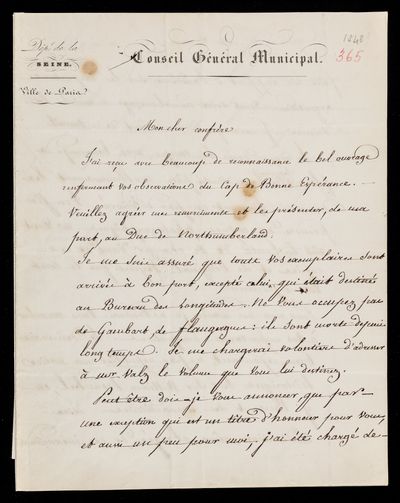 1848
365
Dépt. de la
SEINE.
Ville de Paris
Conseil Général Municipal.
Mon cher confrère
J'ai reçu avec beaucoup de reconnaissance le bel ouvrage
renfermant vos observations du Cap de Bonne Espérance. —
Veuillez agréer mes remerciments et les présenter, de ma
part, au Duc de Northumberland.
Je me suis assuré que toute vos exemplaires sont
arrivés à bon port, excepté celui, qui était destiné
au Bureau des Longitudes. Ne vous occupez pas
de Gambart, de flaugergues: ils sont morts depuis
long temps. Je me chargerai volontiers d'adresser
à mr Valz le volume que vous lui destinez.
Peut être dois-je vous annoncer, que par —
une exception qui est un titre d'honneur pour vous,
et aussi un peu pour moi, j'ai été chargé de —